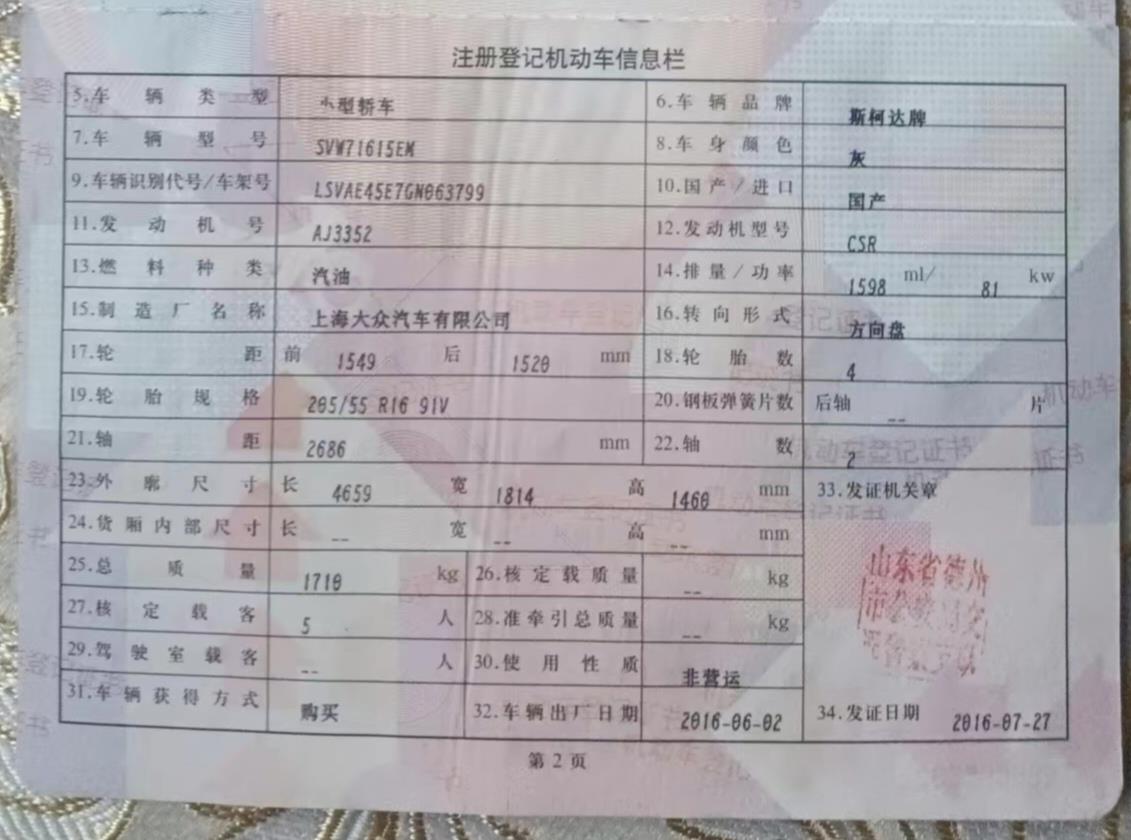 注册登记机动车信息栏
5.车辆类型 小型轿车 6.车辆品牌 斯柯达牌
7.车辆型号 SVW71615EM 8.车身颜色 灰
9.车辆识别代号/车架号 LSVAE45E7GN063799 10.国产/进口 国产
11.发动机号 AJ3352 12.发动机型号 CSR
13.燃料种类 汽油 14.排量/功率 1598 ml/ 81 kw
15.制造厂名称 上海大众汽车有限公司 16.转向形式 方向盘
17.轮距 前 1549 后 1520 mm 18.轮胎数 4
19.轮胎规格 205/55 R16 91V 20.钢板弹簧片数 后轴 -- 片
21.轴距 2686 mm 22.轴数 2
23.外廓尺寸 长 4659 宽 1814 高 1460 mm 33.发证机关章
24.货厢内部尺寸 长 -- 宽 -- 高 -- mm
25.总质量 1710 kg 26.核定载质量 -- kg
27.核定载客 5 人 28.准牵引总质量 -- kg
29.驾驶室载客 -- 人 30.使用性质 非营运
31.车辆获得方式 购买 32.车辆出厂日期 2016-06-02 34.发证日期 2016-07-27
山东省德州
第2页